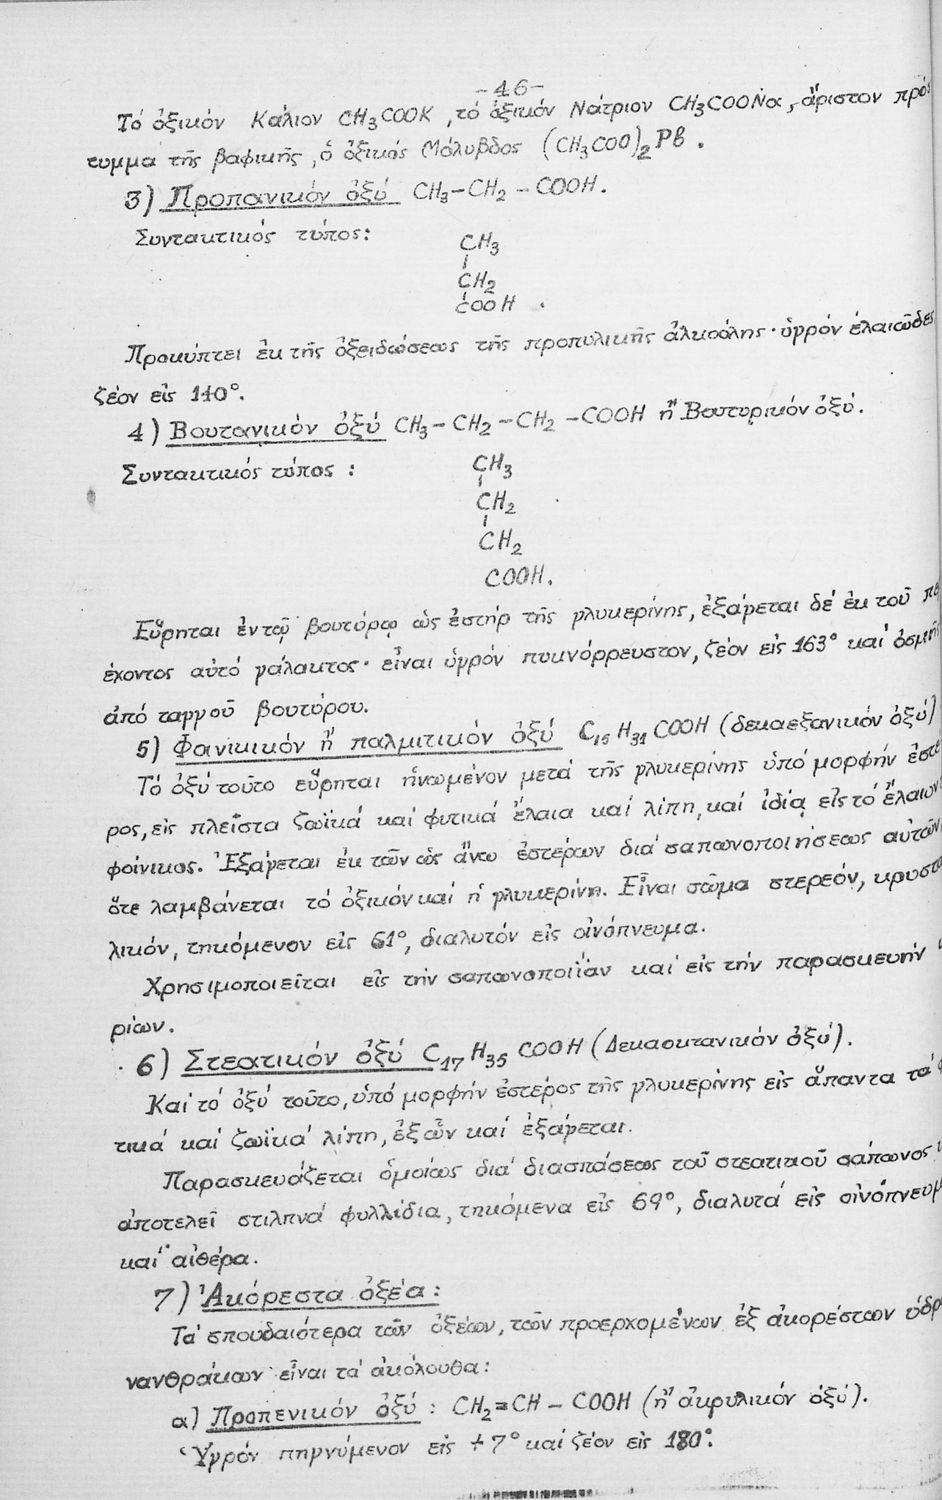 -46-
Τό ὀξικόν Κάλιον CH3COOK, τό ὀξικόν Νάτριον CH3COONa, ἄριστον πρόσ
τυμμα τῆς βαφικῆς, ὁ ὀξικός Μόλυβδος (CH3COO)2Pb.
3) Προπανικόν ὀξύ CH3-CH2-COOH.
Συντακτικός τύπος:
CH3
CH2
COOH.
Προκύπτει ἐκ τῆς ὀξειδώσεως τῆς προπυλικῆς ἀλκοόλης· ὑγρόν ἐλαιῶδες
ζέον εἰς 140°.
4) Βουτανικόν ὀξύ CH3-CH2-CH2-COOH ἤ Βουτυρικόν ὀξύ.
Συντακτικός τύπος:
CH3
CH2
CH2
COOH.
Εὕρηται ἐν τῷ βουτύρῳ ὡς ἐστήρ τῆς γλυκερίνης, ἐξάγεται δέ ἐκ τοῦ
έχοντος αὐτό γάλακτος· εἶναι ὑγρόν πυκνόρρευστον, ζέον εἰς 163° καί ὀσμῆς
ἀπό ταγγοῦ βουτύρου.
5) Φοινικικόν ἤ παλμιτικόν ὀξύ C15H31COOH (δεκαεξανικόν ὀξύ)
Τό ὀξύ τοῦτο εὕρηται ἡνωμένον μετά τῆς γλυκερίνης ὑπό μορφήν ἐστέ
ρος, εἰς πλεῖστα ζωϊκά καί φυτικά ἔλαια καί λίπη, καί ἰδίᾳ εἰς τό ἔλαιον
φοίνικος. Ἐξάγεται ἐκ τῶν ὡς ἄνω ἐστέρων διά σαπωνοποιήσεως αὐτῶν
ὅτε λαμβάνεται τό ὀξικόν καί ἡ γλυκερίνη. Εἶναι σῶμα στερεόν, κρυστα
λικόν, τηκόμενον εἰς 61°, διαλυτόν εἰς οἰνόπνευμα.
Χρησιμοποιεῖται εἰς τήν σαπωνοποιΐαν καί εἰς τήν παρασκευήν
ρίων.
6) Στεατικόν ὀξύ C17H35COOH (Δεκαοκτανικόν ὀξύ).
Καί τό ὀξύ τοῦτο, ὑπό μορφήν ἐστέρος τῆς γλυκερίνης εἰς ἅπαντα τά φ
τικά καί ζωϊκά λίπη, ἐξ ὧν καί ἐξάγεται.
Παρασκευάζεται ὁμοίως διά διασπάσεως τοῦ στεατικοῦ σάπωνος
ἀποτελεῖ στιλπνά φυλλίδια, τηκόμενα εἰς 69°, διαλυτά εἰς οἰνόπνευμ
καί αἰθέρα.
7) Ἀκόρεστα ὀξέα:
Τά σπουδαιότερα τῶν ὀξέων, τῶν προερχομένων ἐξ ἀκορέστων ὑδρ
νανθράκων εἶναι τά ἀκόλουθα:
α) Προπενικόν ὀξύ: CH2=CH-COOH (ἤ ἀκρυλικόν ὀξύ).
Ὑγρόν πηγνύμενον εἰς +7° καί ζέον εἰς 180°.